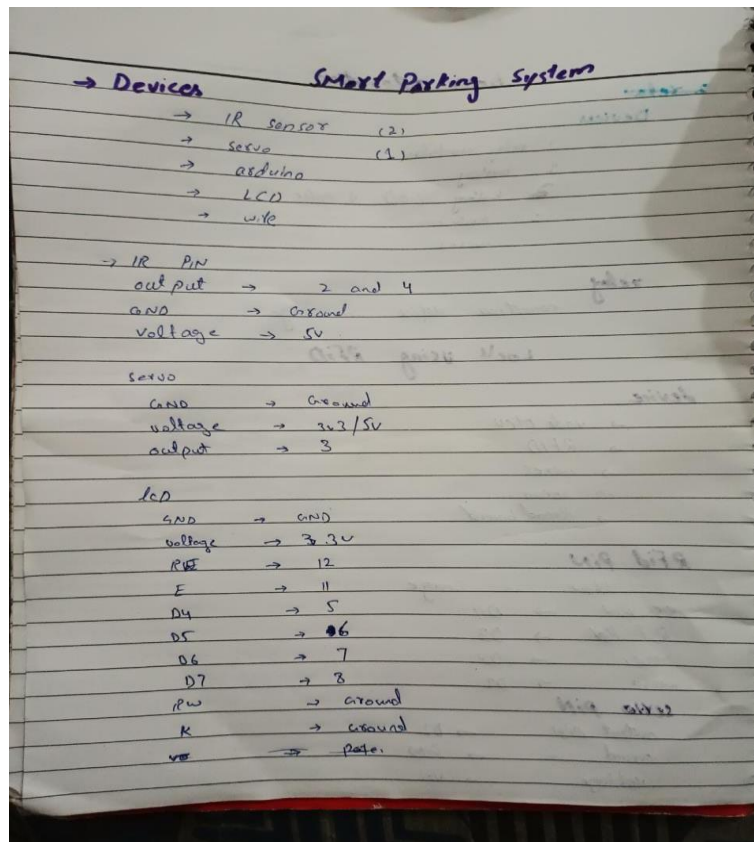 Smart Parking System
→ Devices
→ IR sensor (2)
→ servo (1)
→ arduino
→ LCD
→ wire
→ IR PIN
output → 2 and 4
GND → Ground
voltage → 5v
servo
GND → Ground
voltage → 3v3/5v
output → 3
lcD
GND → GND
voltage → 3.3v
E → 11
D4 → 5
D5 → 6
D6 → 7
D7 → 8
RW → Ground
K → Ground